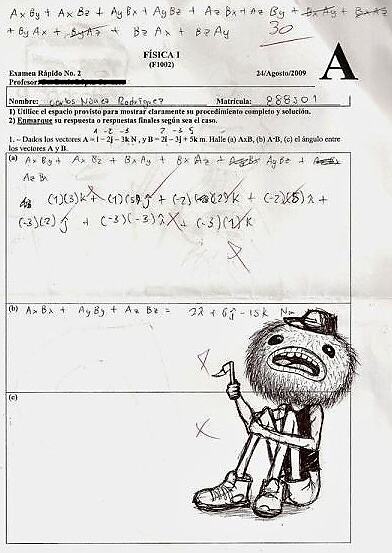 AxBy + AxBz + AyBx + AyBz + AzBx + AzBy + BxAy + BxAz
+ ByAx + ByAz + BzAx + BzAy
30
FÍSICA I
(F1002)
A
Examen Rápido No. 2
24/Agosto/2009
Profesor:
Nombre: Carlos Núñez Rodríguez Matrícula: 888301
1) Utilice el espacio provisto para mostrar claramente su procedimiento completo y solución.
2) Enmarque su respuesta o respuestas finales según sea el caso.
1 -2 -3 2 -3 5
1.- Dados los vectores A = i – 2j – 3k N, y B = 2i – 3j + 5k m. Halle (a) AxB, (b) A·B, (c) el ángulo entre
los vectores A y B.
(a) AxBy + AxBz + AyBx + AyBz +
AzBx
(-3)(2)ĵ + (-3)(-3)
(b) AxBx + AyBy + AzBz = 2î + 6ĵ - 15k Nm
(c)